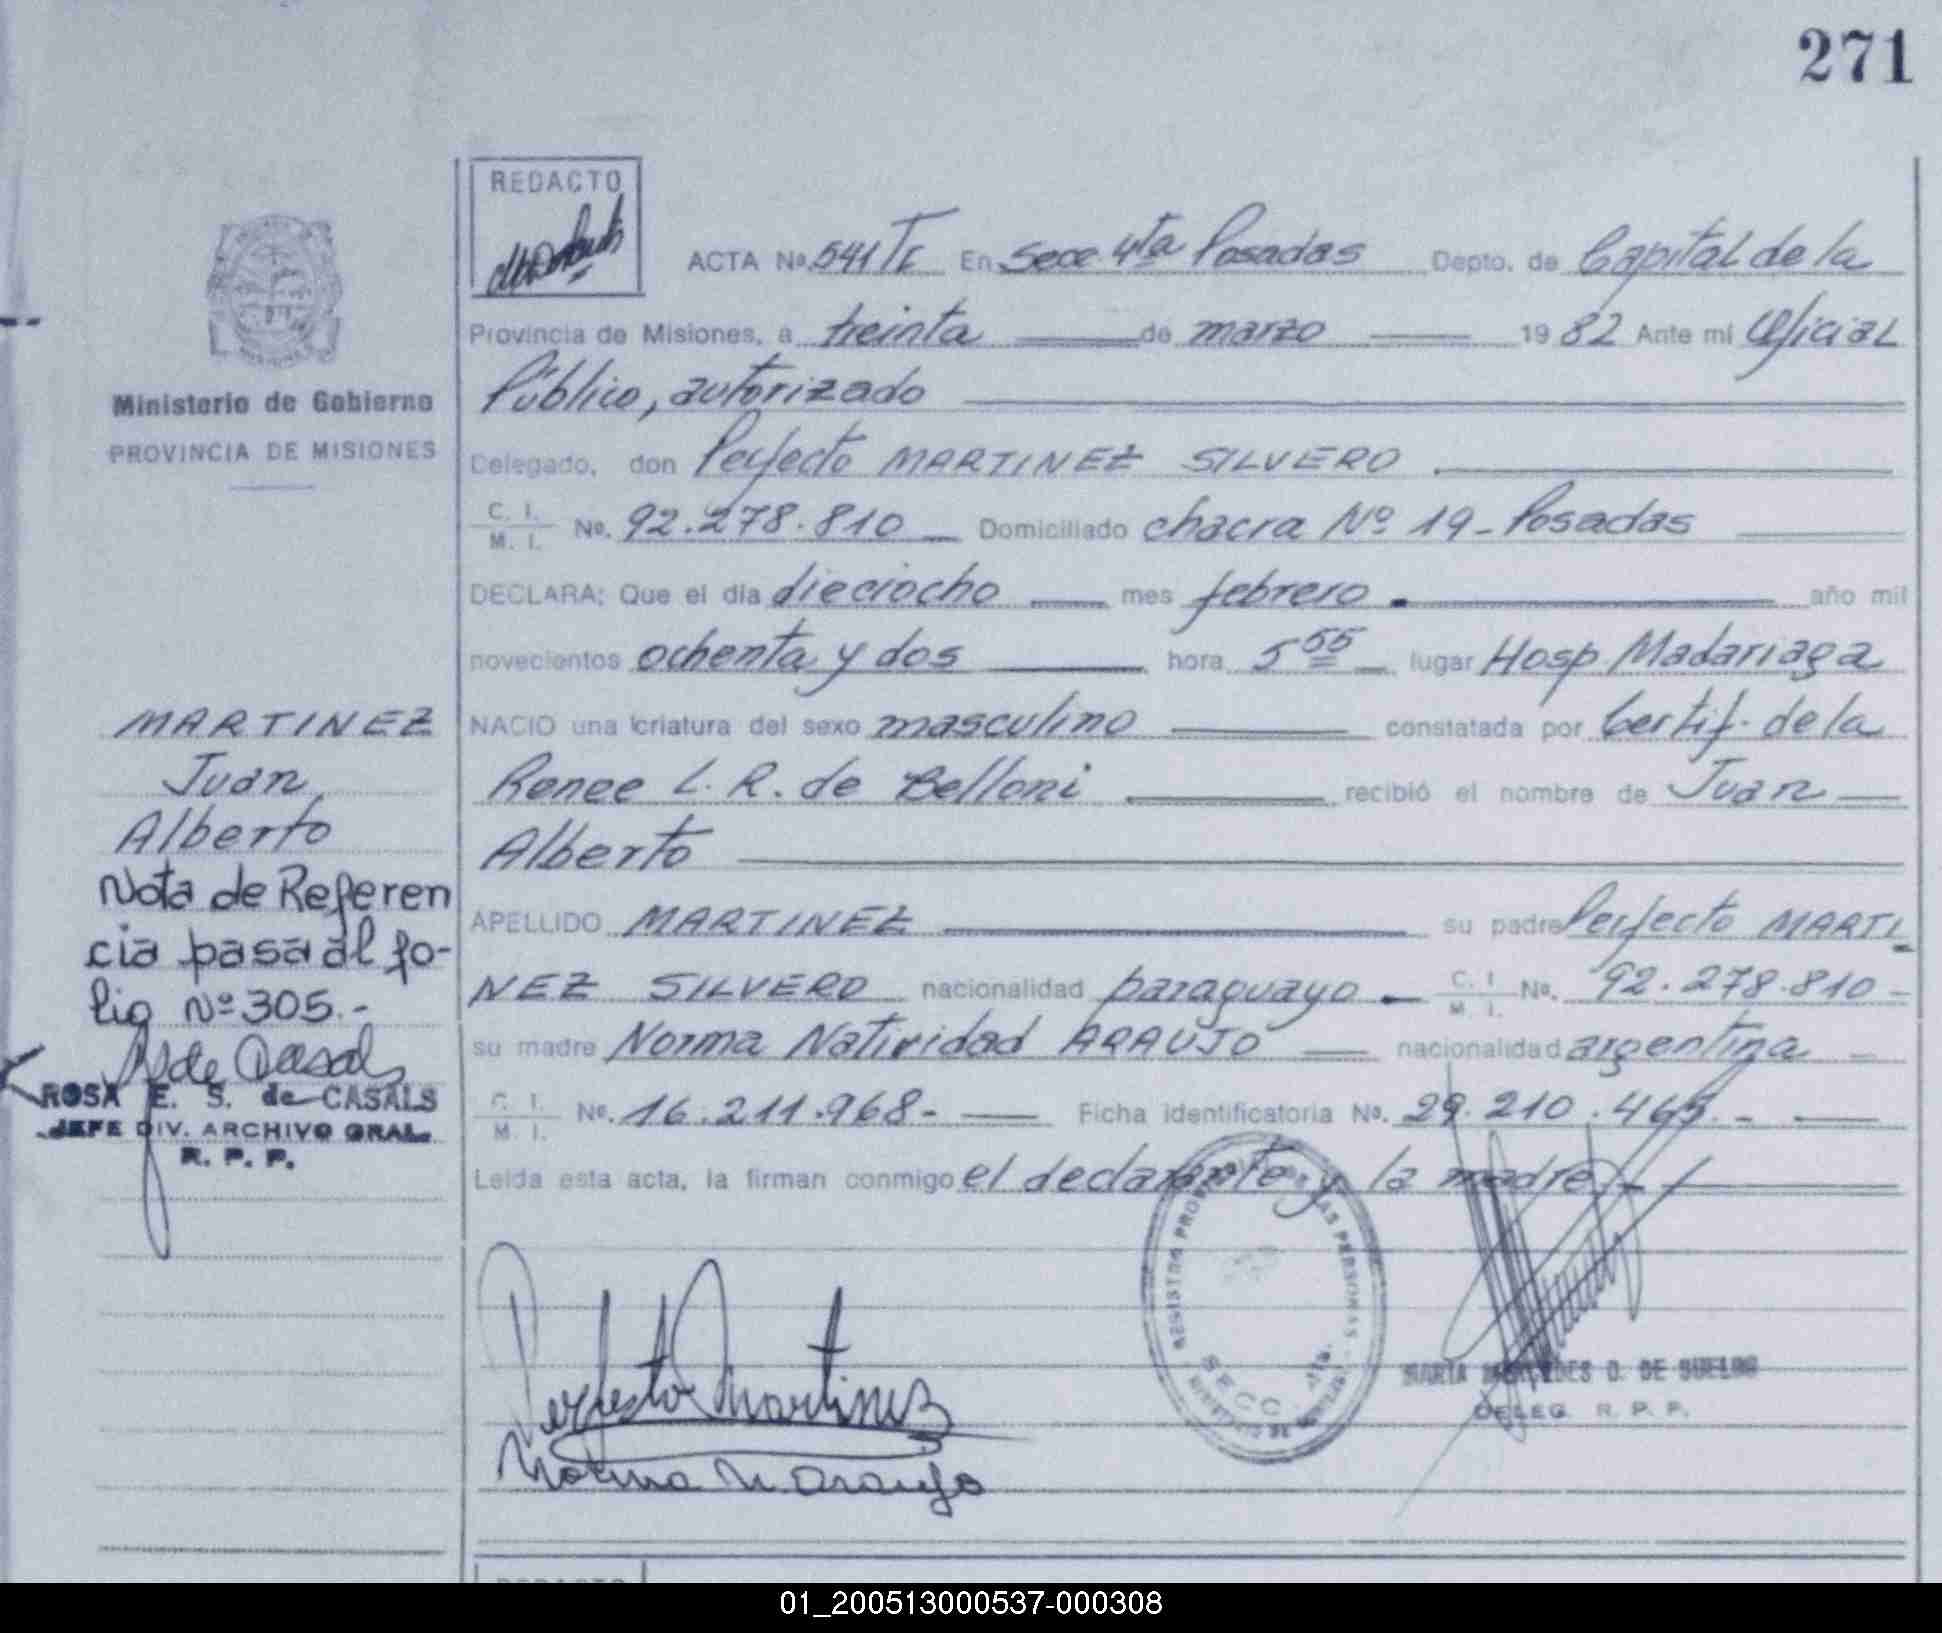 271
REDACTO
ACTA No. 541 TE En Secc 4ta Posadas Depto. de Capital de la
Provincia de Misiones, a treinta de marzo 19 82 Ante mí Oficial
Público, autorizado
Ministerio de Gobierno
PROVINCIA DE MISIONES
Delegado, don Perfecto MARTINEZ SILVERO
C. I. M. I. No. 92.278.810 Domiciliado chacra Nº 19 - Posadas
DECLARA: Que el día dieciocho mes febrero año mil
novecientos ochenta y dos hora 5 55 lugar Hosp. Madariaga
NACIO una criatura del sexo masculino constatada por Certif. de la
Renee L. R. de Belloni recibió el nombre de Juan
Alberto
APELLIDO MARTINEZ su padre Perfecto MARTI
NEZ SILVERO nacionalidad paraguayo C. I. M. I. No. 92.278.810 -
su madre Norma Natividad ARAUJO nacionalidad argentina
C. I. M. I. No. 16.211.968 - Ficha identificatoria No. 29.210.465. -
Leída esta acta, la firman conmigo el declarante y la madre. -
MARTINEZ
Juan
Alberto
Nota de Referen
cia pasa al fo-
lio Nº 305.-
de Casals
ROSA E. S. de CASALS
JEFE DIV. ARCHIVO GRAL.
R. P. P.
Perfecto Martinez
Norma N. Araujo
REGISTRO PERSONAS
SECC. 4ta.
MARIA MERCEDES D. DE
DELEG. R. P. P.
REDACTO
01_200513000537-000308